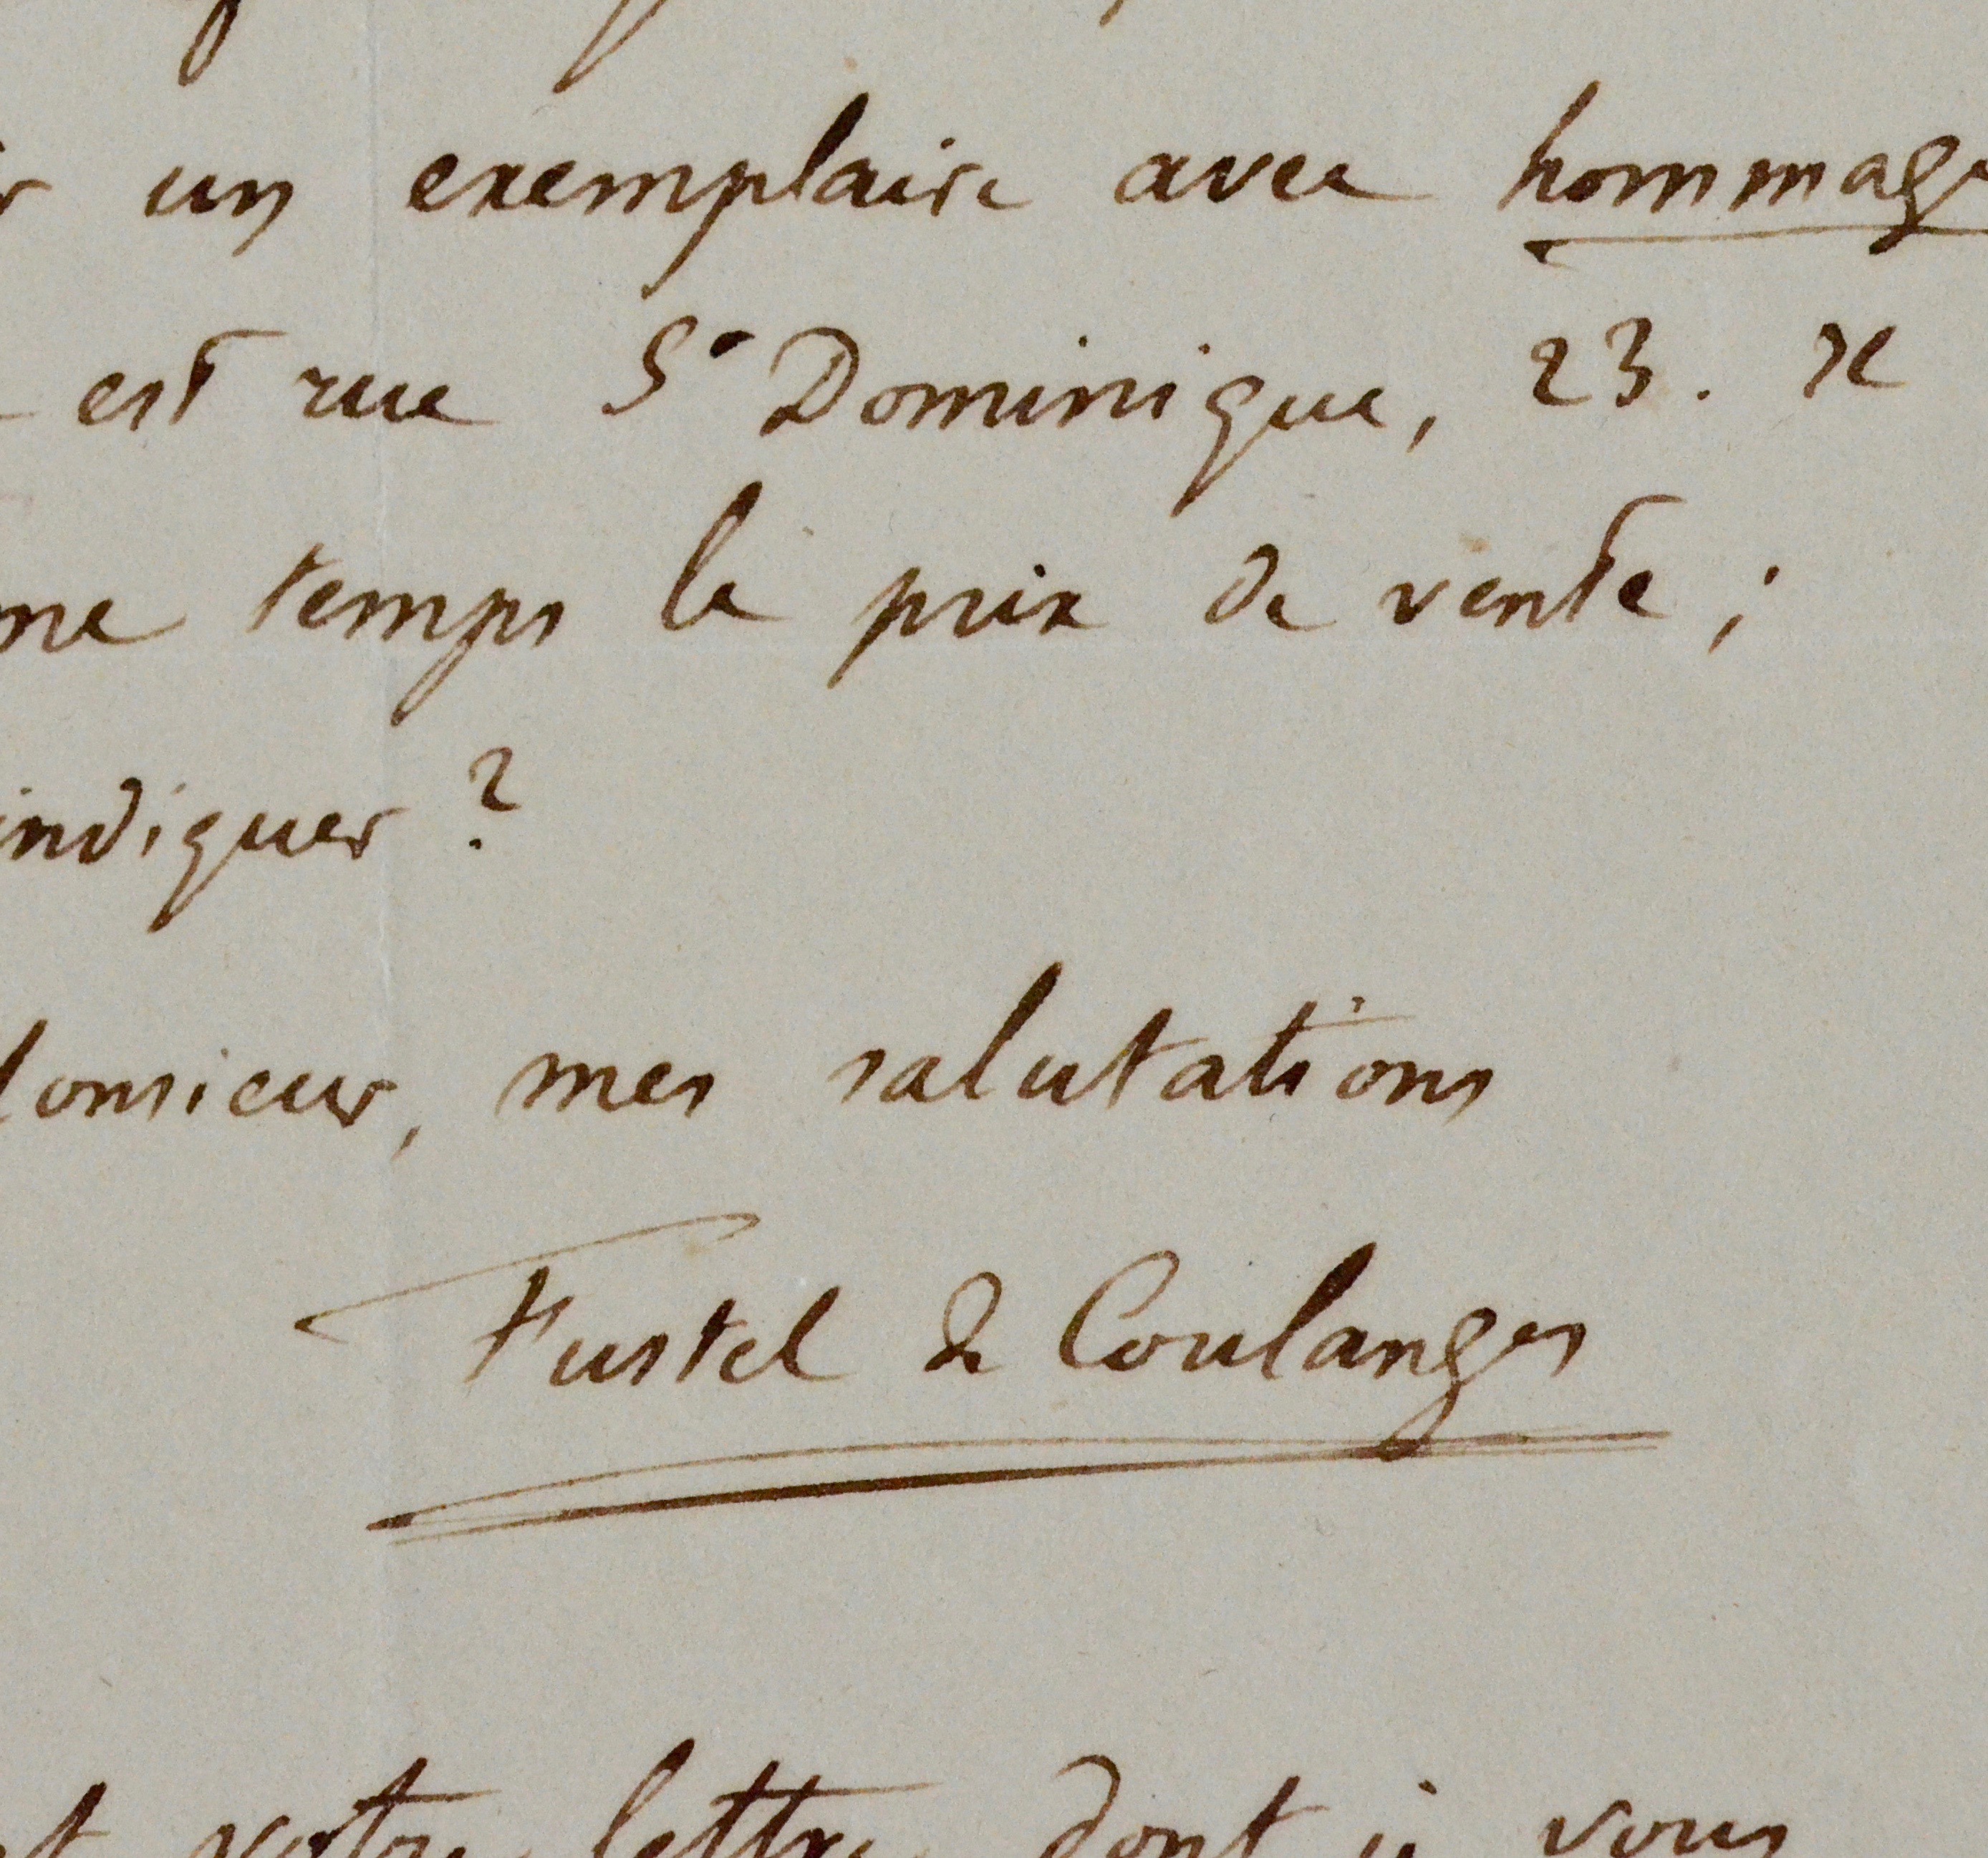 un exemplaire avec hommage
est rue St Dominique, 23. Je
me temps le prix de vente ;
indiquer ?
Monsieur, mes salutations
Fustel de Coulanges
votre lettre dont je vous